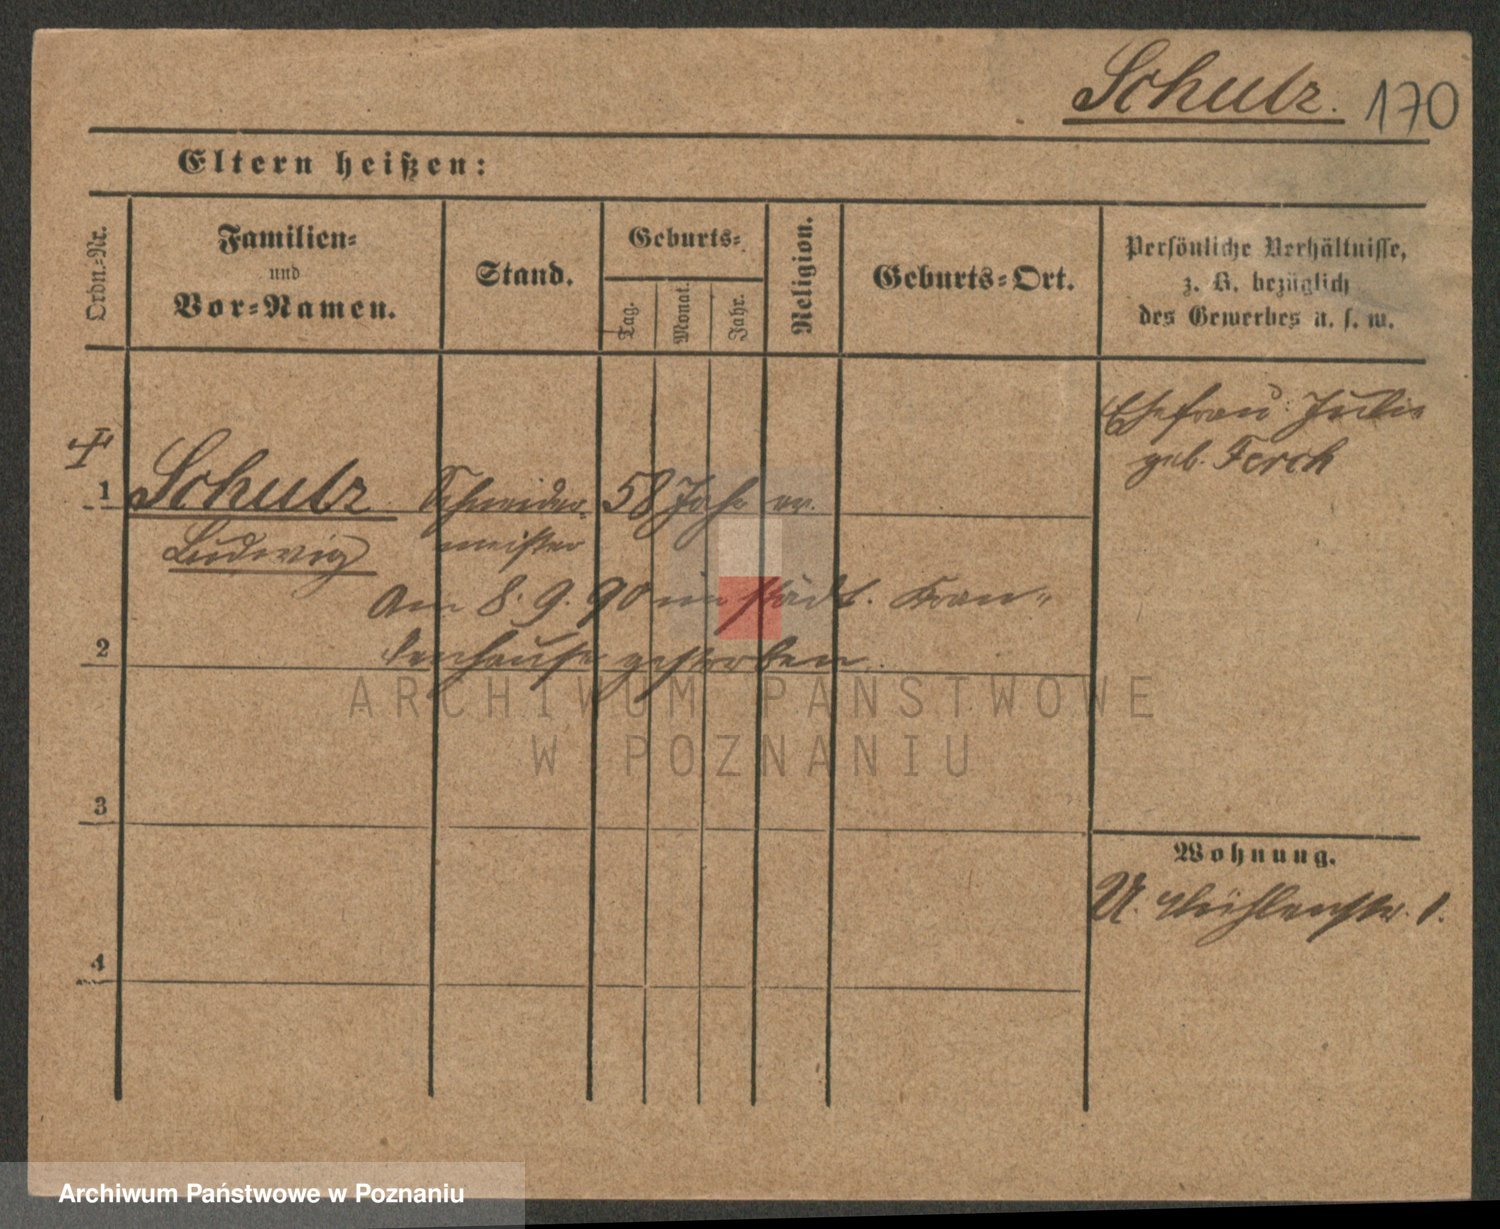 Schulz. 170
Eltern heißen:
Ordn.-Nr.
Familien-
und
Vor-Namen.
Stand.
Geburts-
Tag.
Monat.
Jahr.
Religion.
Geburts-Ort.
Persönliche Verhältnisse,
z. B. bezüglich
des Gewerbes u. s. w.
Ehefrau: Julie
geb. Ferch
1 Schulz Schneider- 58 Jahr ev.
Ludwig meister
Am 8. 9. 90 im städt. Kran-
kenhause gestorben.
2
3
4
Wohnung.
U. Mühlenstr. 1.
ARCHIWUM PAŃSTWOWE
W POZNANIU
Archiwum Państwowe w Poznaniu